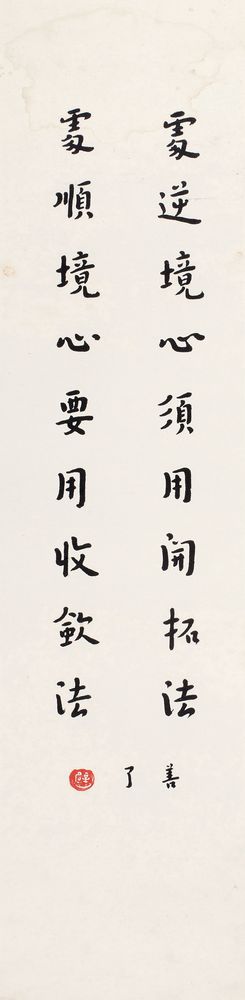 處逆境心須用開拓法
處順境心要用收斂法
善了